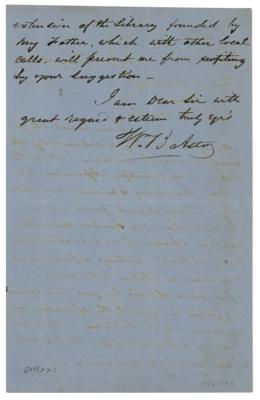 extension of the Library founded by
my Father, which with other local
calls, will prevent me from profiting
by your suggestion —
I am Dear Sir with
great regard & esteem truly yrs
Wm B Astor